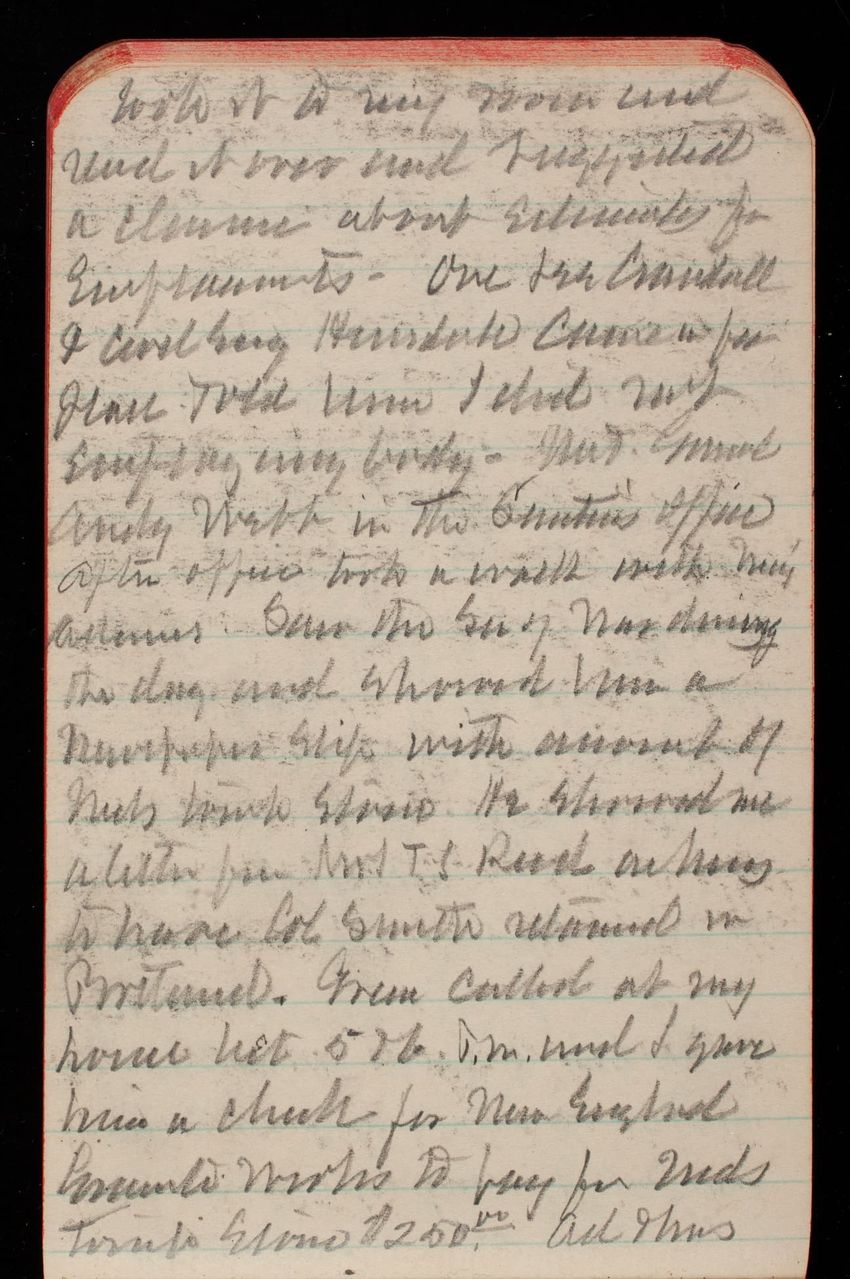 took it to my room and
read it over and suggested
a clause about Estimates for
Emplacements - One Lee Crandall
& Geo Hinsdale Came a for
place Told him I did not
Employ any body - Met Genl
Andy Webb in the Senators Office
After office took a walk with Maj
Adams. Saw the Sec of War during
the day and showed him a
Newspaper Slip with account of
Neds tomb Stone. He showed me
a letter from Mrs T. S. Reed asking
to have Col Smith retained in
Portland. Green called at my
house bet 5 & 6 P.m. and I gave
him a check for New England
Granite Works to pay for Neds
Tomb Stone $250.00